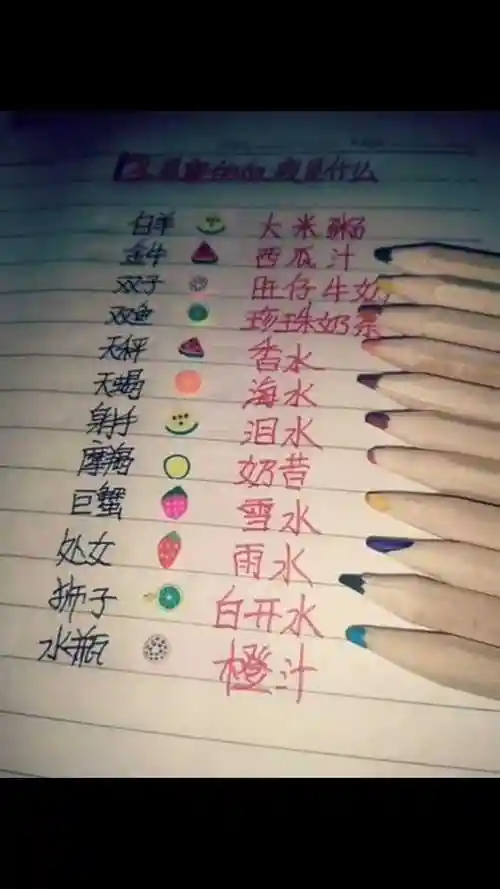 是什么
白羊 大米粥
金牛 西瓜汁
双子 旺仔牛奶
双鱼 珍珠奶茶
天秤 香水
天蝎 海水
射手 泪水
摩羯 奶昔
巨蟹 雪水
处女 雨水
狮子 白开水
水瓶 橙汁